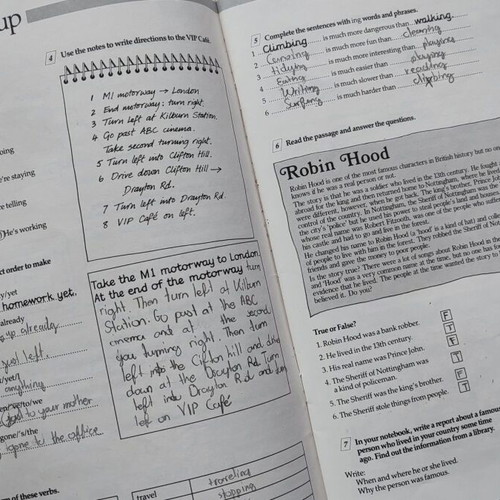 up
4 Use the notes to write directions to the VIP Café.
1 M1 motorway → London
2 End motorway: turn right.
3 Turn left at Kilburn Station.
4 Go past ABC cinema.
Take second turning right.
5 Turn left into Clifton Hill.
6 Drive down Clifton Hill →
Drayton Rd.
7 Turn left into Drayton Rd.
8 VIP Café on left.
Take the M1 motorway to London.
At the end of the motorway turn
right. Then turn left at Kilburn
Station. Go past at the ABC
cinema and at the second
you turning right. Then turn
left into the Clifton hill and drive
down at the Drayton Rd. Turn
left into Drayton Rd. and
left on VIP Café
going
're staying
're telling
He's working
ct order to make
/yet
homework yet.
already
up already.
just left.
/yet/I
anything
en/'ve/to/we
to your mother
gone/'s/the
gone to the office
n of these verbs.
travel
traveling
stopping
5 Complete the sentences with ing words and phrases.
1 Climbing is much more dangerous than walking.
2 is much more fun than cleaning
3 Tidying is much more interesting than playing
4 Eating is much easier than
5 Writing is much slower than reading
6 Surfing is much harder than climbing
6 Read the passage and answer the questions.
Robin Hood
Robin Hood is one of the most famous characters in British history but no one
knows if he was a real person or not.
The story is that he was a soldier who lived in the 13th century. He fought
abroad for the king and then returned home to Nottingham, where he lived
were different, however, when he got back. The king's brother, Prince John
control of the country. In Nottingham, the Sheriff of Nottingham was
the city's 'police' but he used his power to steal people's land and
whose real name was Robert Fitzooth, was one of the people who
his castle and had to go and live in the forest.
He changed his name to Robin Hood (a 'hood' is a kind of hat) and
of people to live with him in the forest. They robbed the Sheriff of
friends and gave the money to poor people.
Is the story true? There were a lot of songs about Robin Hood in the
and 'Hood' was a very common name at the time, but no one has
evidence that he lived. The people at the time wanted the story to
believed it. Do you?
True or False?
1. Robin Hood was a bank robber. F
2. He lived in the 13th century. T
3. His real name was Prince John. F
4. The Sheriff of Nottingham was
a kind of policeman. T
5. The Sheriff was the king's brother. F
6. The Sheriff stole things from people. T
7 In your notebook, write a report about a famous
person who lived in your country some time
ago. Find out the information from a library.
Write:
When and where he or she lived.
Why the person was famous.